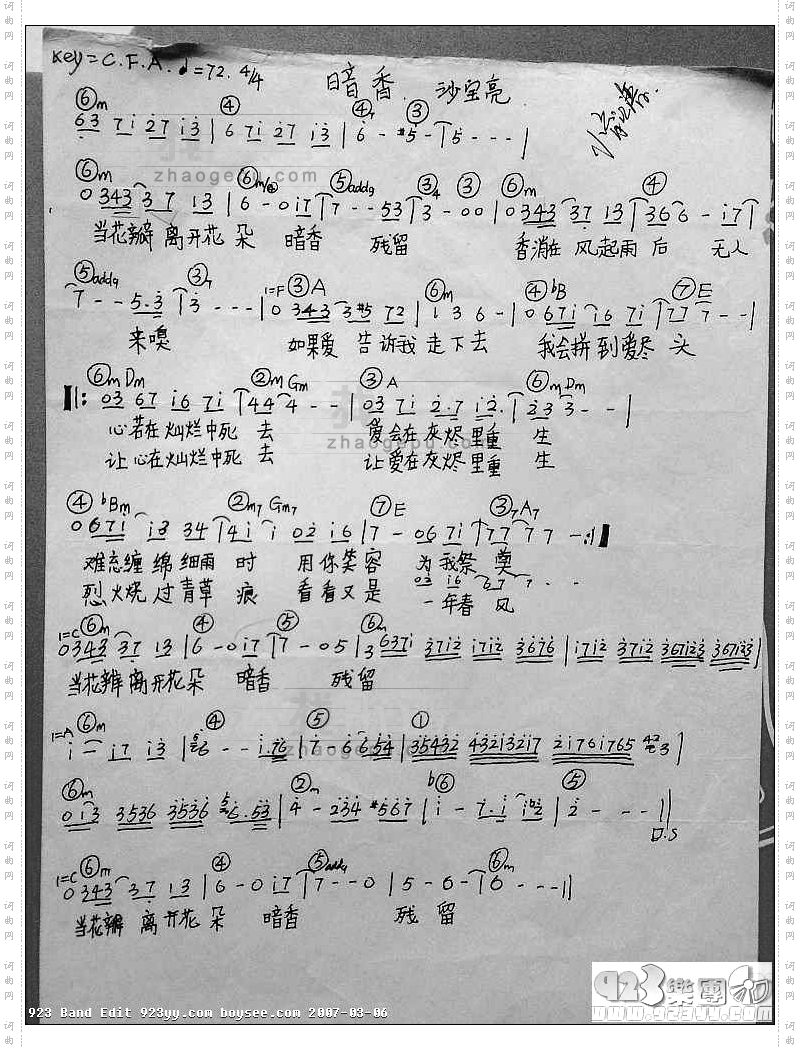 Key=C.F.A. ♩=72. 4/4
暗香 沙宝亮
⑥m ④ ④ ③
63 7i 27 i3 | 6 7i 27 i3 | 6 - #5 - | 5 - - - |
⑥m ⑥m ⑤add9 ③4 ③ ⑥m ④
0 343 37 13 | 6 - 0 i7 | 7 - - 53 | 3 - 0 0 | 0 343 37 13 | 36 6 - i7 |
当花瓣 离开花 朵 暗香 残留 香消在 风起雨 后 无人
⑤add9 ③7 1=F ③A ⑥m ④bB ⑦E
7 - - 5.3 | 3 - - - | 0 343 3#5 72 | 1 3 6 - | 0 67i i6 7i | 77 7 - - |
来嗅 如果爱 告诉我 走下去 我会拼到爱尽 头
⑥m Dm ②m Gm ③A ⑥m Dm
‖: 03 67 i6 7i | 44 4 - - | 03 7i 2.7 i2. | 23 3 - - |
心若在灿烂中死 去 爱会在灰烬里重 生
让心在灿烂中死 去 让爱在灰烬里重 生
④ bBm ②m7 Gm7 ⑦E ③7 A7
0 67i i3 34 | 4i i 02 i6 | 7 - 06 7i | 77 77 7 - :‖
难忘缠 绵细雨 时 用你笑容 为我祭 奠
烈火烧 过青草 痕 看看又是 一年春 风
03 i6 67 7 - -
1=C ⑥m ④ ⑤ ⑥m
0343 37 13 | 6 - 0i7 | 7 - 05 | 3 637i 37i2 i7i2 3676 | i7i2 37i2 367i23 367i23 |
当花瓣 离开花朵 暗香 残留
1=A ⑥m ④ ⑤ ①
i - i7 i3 | 6 - - i.76 | 7 - 6 654 | 35432 432i32i7 2i76i765 3 |
⑥m ②m b⑥ ⑤
0 i3 3536 3536 6.53 | 4 - 234 #567 | i - 7.i i | 2 - - - ‖
D.S
1=C ⑥m ④ ⑤add9 ⑥m
0 343 37 13 | 6 - 0 i7 | 7 - - 0 | 5 - 6 - | 6 - - - ‖
当花瓣 离开花 朵 暗香 残 留
zhaogepu.com
zhaogepu.com
zhaogepu.com
923樂團
www.923yy.com
923 Band Edit 923yy.com boysee.com 2007-03-06
词曲网